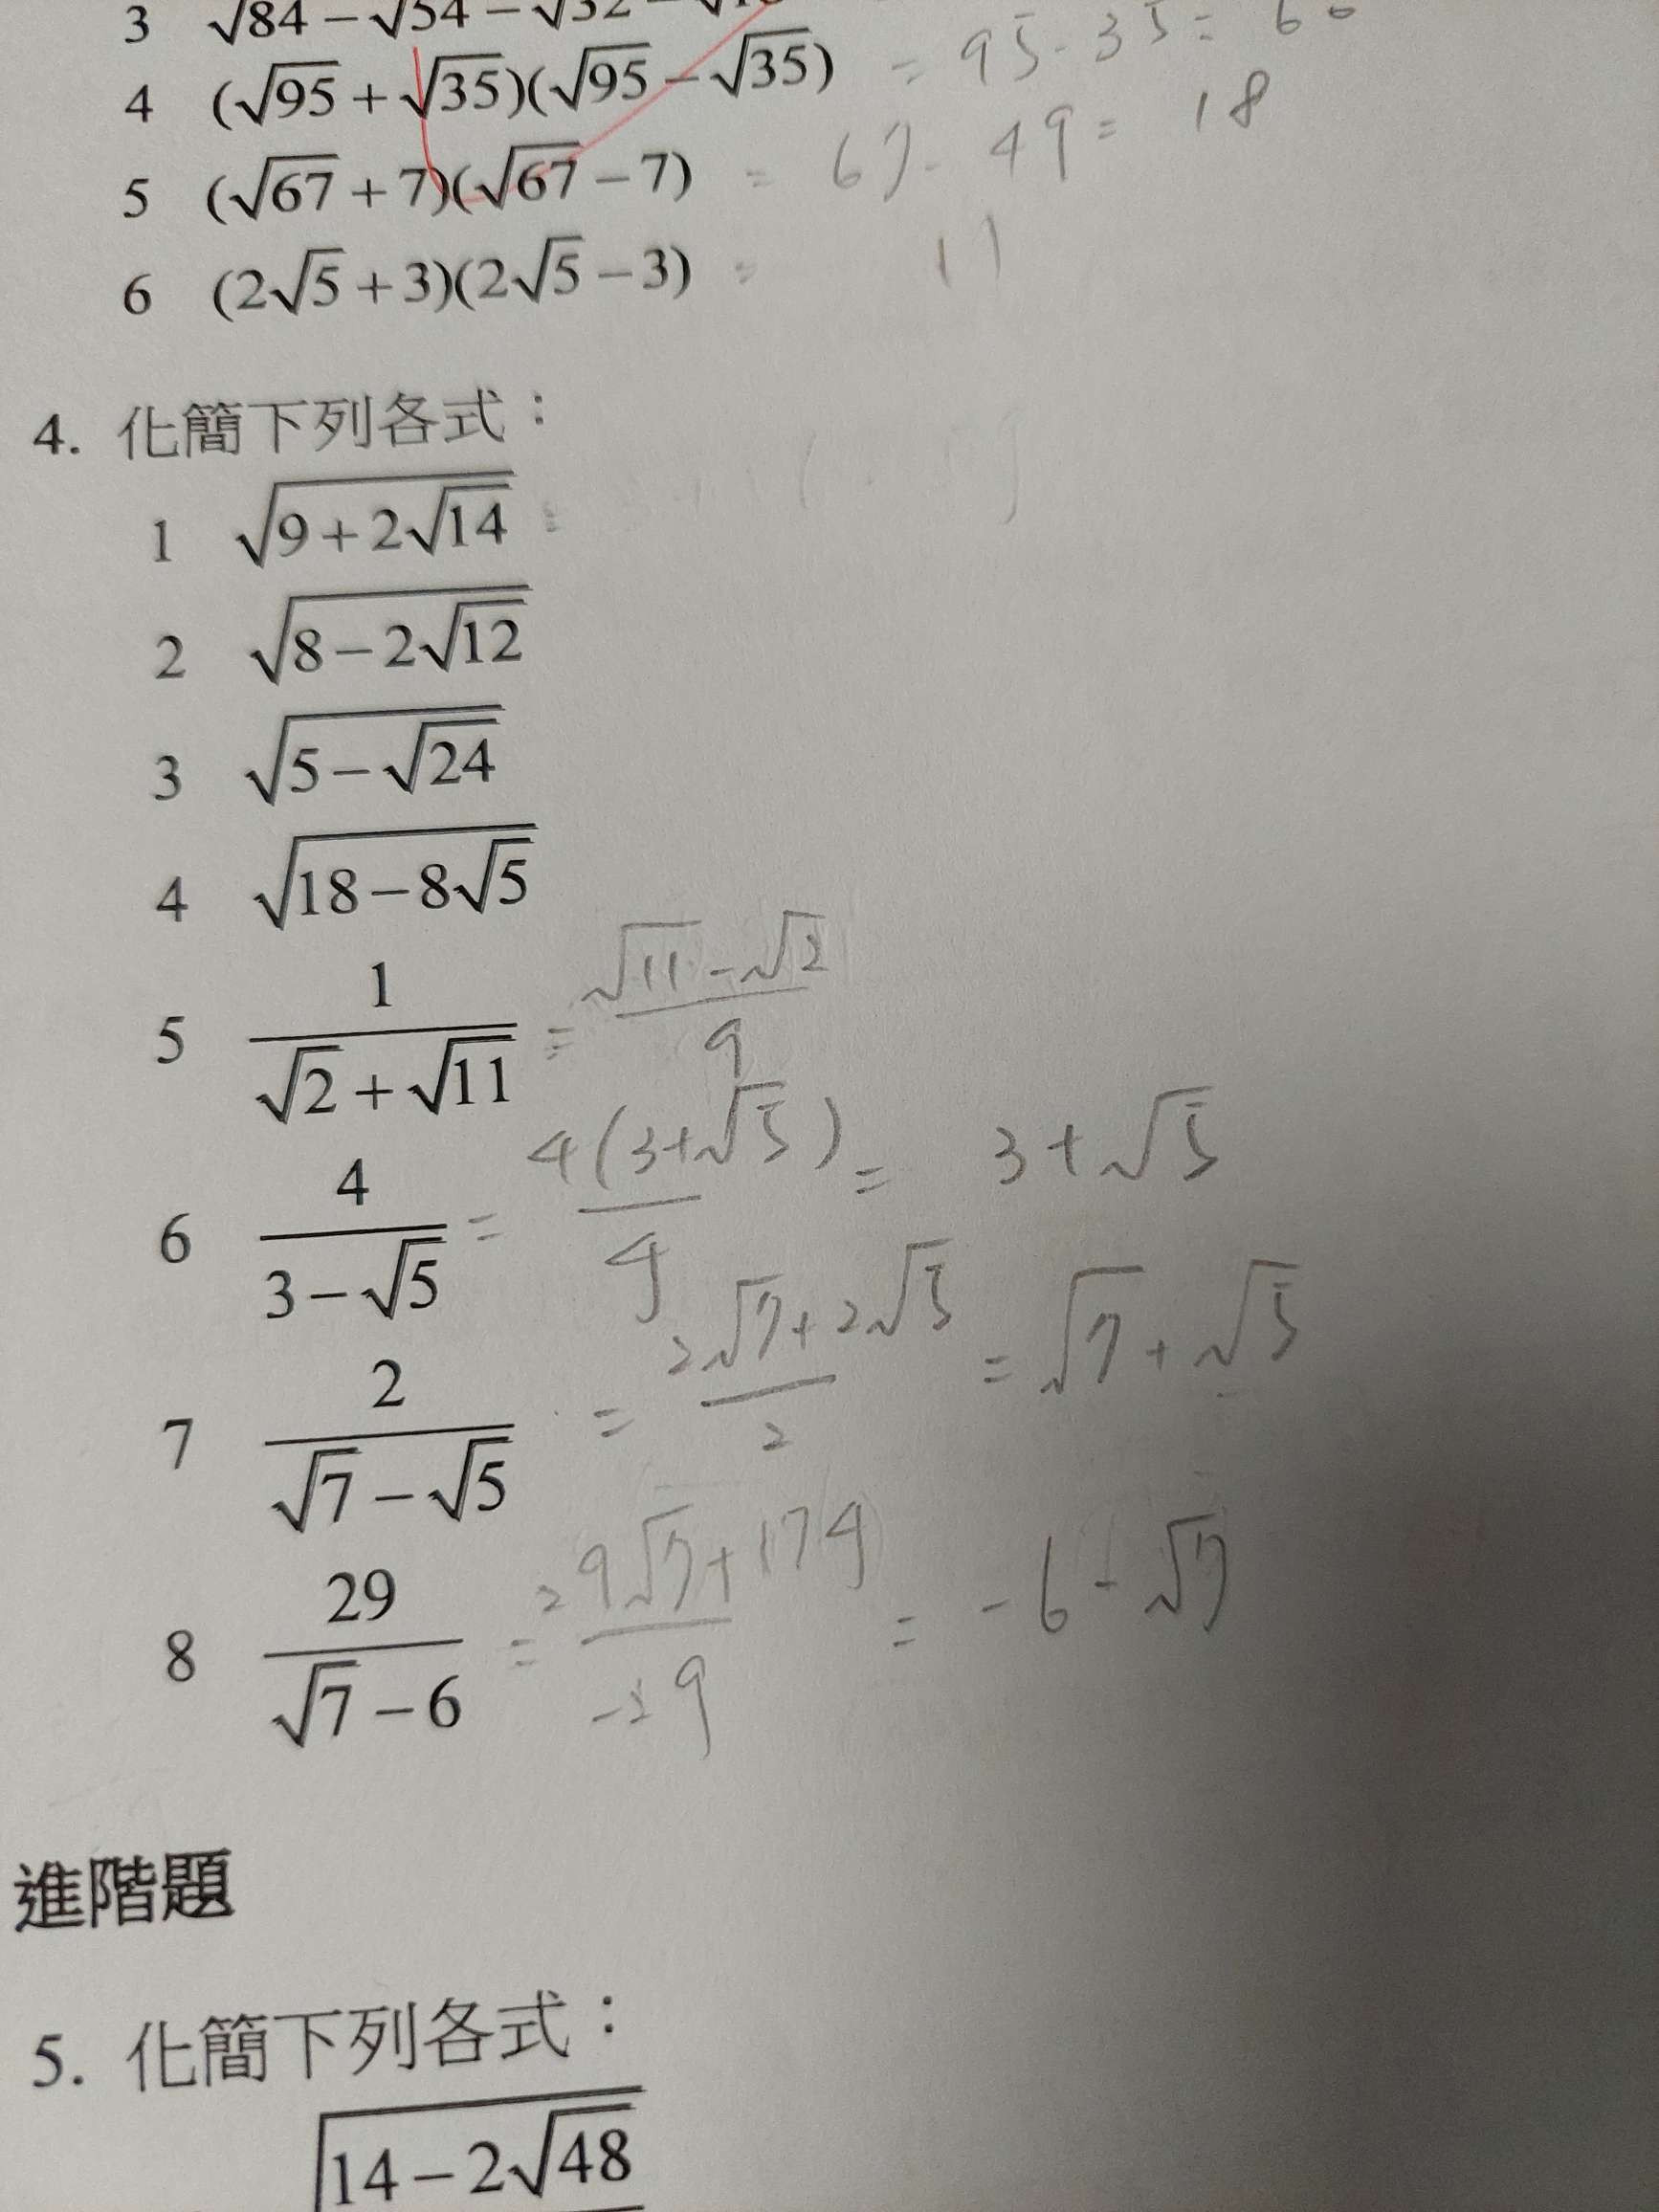 3 √84 − √54 − √32
4 (√95 + √35)(√95 − √35) = 95 - 35 = 60
5 (√67 + 7)(√67 − 7) = 67 - 49 = 18
6 (2√5 + 3)(2√5 − 3) = 11
4. 化簡下列各式：
1 √(9 + 2√14) =
2 √(8 − 2√12)
3 √(5 − √24)
4 √(18 − 8√5)
5 1/(√2 + √11) = (√11 - √2)/9
6 4/(3 − √5) = 4(3+√5)/4 = 3+√5
7 2/(√7 − √5) = (2√7+2√5)/2 = √7+√5
8 29/(√7 − 6) = (29√7+174)/-29 = -6-√7
進階題
5. 化簡下列各式：
√(14 − 2√48)